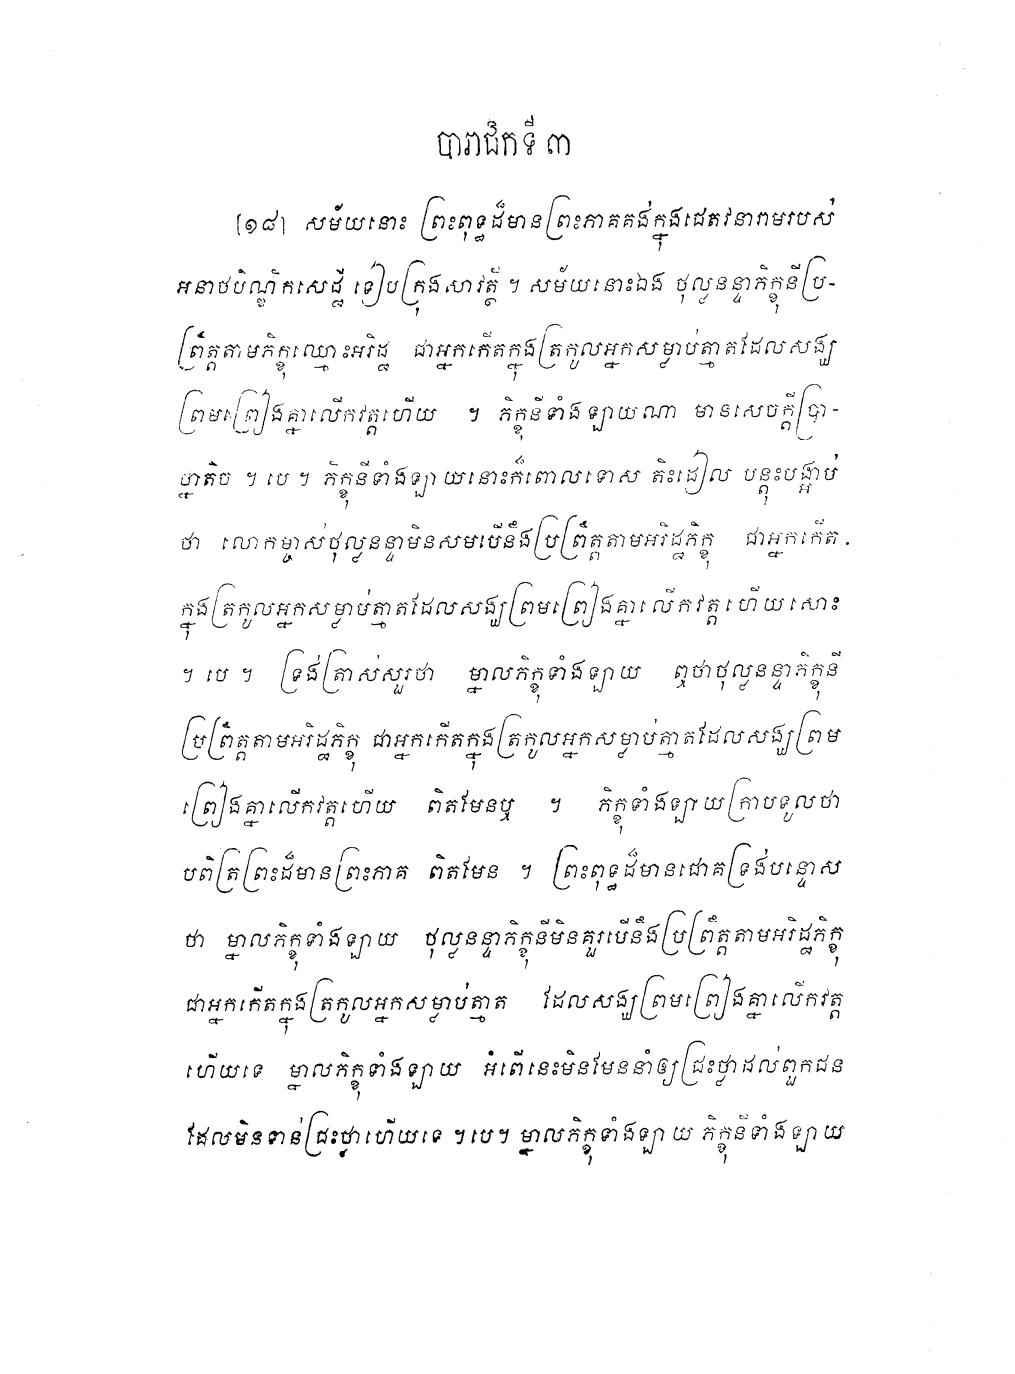 បារាជិកទី ៣
[១៨] សម័យនោះ ព្រះពុទ្ធដ៏មានព្រះភាគគង់ក្នុងជេតវនារាមរបស់
អនាថបិណ្ឌិកសេដ្ឋី ទៀបក្រុងសាវត្ថី ។ សម័យនោះឯង ថុល្លនន្ទាភិក្ខុនីប្រ-
ព្រឹត្តតាមភិក្ខុឈ្មោះអរិដ្ឋ ជាអ្នកកើតក្នុងត្រកូលអ្នកសម្លាប់ត្មាតដែលសង្ឃ
ព្រមព្រៀងគ្នាលើកវត្តហើយ ។ ភិក្ខុនីទាំងឡាយណា មានសេចក្តីប្រា-
ថ្នាតិច ។ បេ ។ ភិក្ខុនីទាំងឡាយនោះក៏ពោលទោស តិះដៀល បន្តុះបង្អាប់
ថា លោកម្ចាស់ថុល្លនន្ទាមិនសមបើនឹងប្រព្រឹត្តតាមអរិដ្ឋភិក្ខុ ជាអ្នកកើត
ក្នុងត្រកូលអ្នកសម្លាប់ត្មាតដែលសង្ឃព្រមព្រៀងគ្នាលើកវត្តហើយសោះ
។ បេ ។ ទ្រង់ត្រាស់សួរថា ម្នាលភិក្ខុទាំងឡាយ ឮថាថុល្លនន្ទាភិក្ខុនី
ប្រព្រឹត្តតាមអរិដ្ឋភិក្ខុ ជាអ្នកកើតក្នុងត្រកូលអ្នកសម្លាប់ត្មាតដែលសង្ឃព្រម
ព្រៀងគ្នាលើកវត្តហើយ ពិតមែនឬ ។ ភិក្ខុទាំងឡាយក្រាបទូលថា
បពិត្រព្រះដ៏មានព្រះភាគ ពិតមែន ។ ព្រះពុទ្ធដ៏មានជោគទ្រង់បន្ទោស
ថា ម្នាលភិក្ខុទាំងឡាយ ថុល្លនន្ទាភិក្ខុនីមិនគួរបើនឹងប្រព្រឹត្តតាមអរិដ្ឋភិក្ខុ
ជាអ្នកកើតក្នុងត្រកូលអ្នកសម្លាប់ត្មាត ដែលសង្ឃព្រមព្រៀងគ្នាលើកវត្ត
ហើយទេ ម្នាលភិក្ខុទាំងឡាយ អំពើនេះមិនមែននាំឲ្យជ្រះថ្លាដល់ពួកជន
ដែលមិនទាន់ជ្រះថ្លាហើយទេ ។ បេ ។ ម្នាលភិក្ខុទាំងឡាយ ភិក្ខុនីទាំងឡាយ